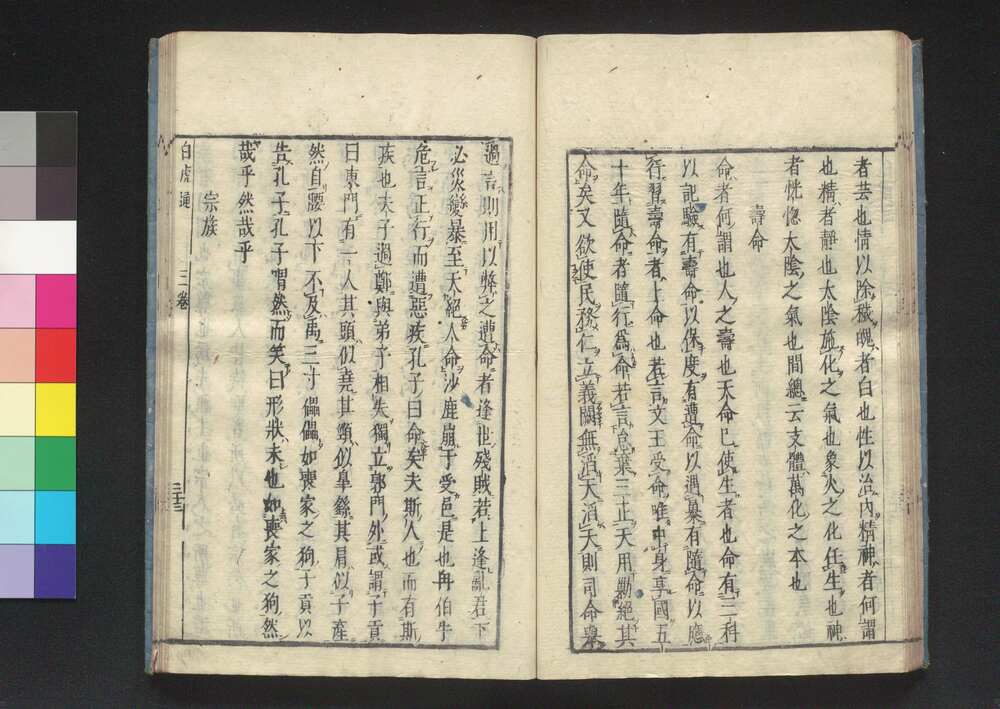 者芸也情以除穢魄者白也性以治內精神者何謂
也精者靜也太陰施化之氣也象火之化任生也神
者恍惚太陰之氣也間總云支體萬化之本也
壽命
命者何謂也人之壽也天命已使生者也命有三科
以記驗有壽命以保度有遭命以遇暴有隨命以應
行習壽命者上命也若言文王受命唯中身享國五
十年隨命者隨行爲命若言怠棄三正天用勦絕其
命矣又欲使民務仁立義闕無滔天滔天則司命舉
過言則用以弊之遭命者逢世殘賊若上逢亂君下
必災變暴至夭絕人命沙鹿崩于受邑是也冉伯牛
危言正行而遭惡疾孔子曰命矣夫斯人也而有斯
疾也夫子過鄭與弟子相失獨立郭門外或謂子貢
曰東門有一人其頭似堯其頸似皐繇其肩似子產
然自腰以下不及禹三寸儡儡如喪家之狗子貢以
告孔子孔子喟然而笑曰形狀未也如喪家之狗然
哉乎然哉乎
宗族
白虎通 三卷 三十三